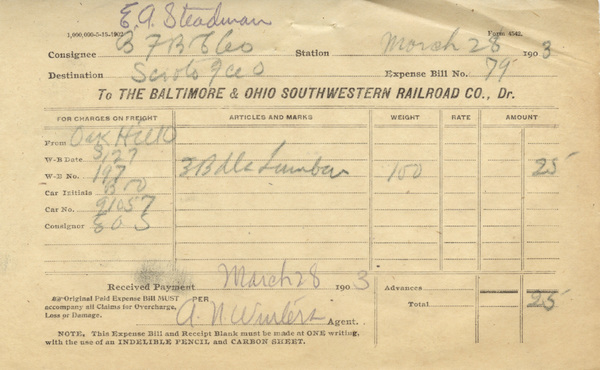 E. A. Steadman
1,000,000-5-15-1902 Form 4542.
Consignee B F B & Co Station March 28 1903
Destination Scioto Fce O Expense Bill No. 79
To THE BALTIMORE & OHIO SOUTHWESTERN RAILROAD CO., Dr.
FOR CHARGES ON FREIGHT ARTICLES AND MARKS WEIGHT RATE AMOUNT
From Oak Hill O
W-B Date 3/27
W-B No. 197 3 Bdls Lumber 150 25
Car Initials B O
Car No. 91057
Consignor E O S
Received Payment March 28 1903 Advances
Original Paid Expense Bill MUST PER Total 25
accompany all Claims for Overcharge, A. N. Winters Agent.
Loss or Damage.
NOTE, This Expense Bill and Receipt Blank must be made at ONE writing,
with the use of an INDELIBLE PENCIL and CARBON SHEET.